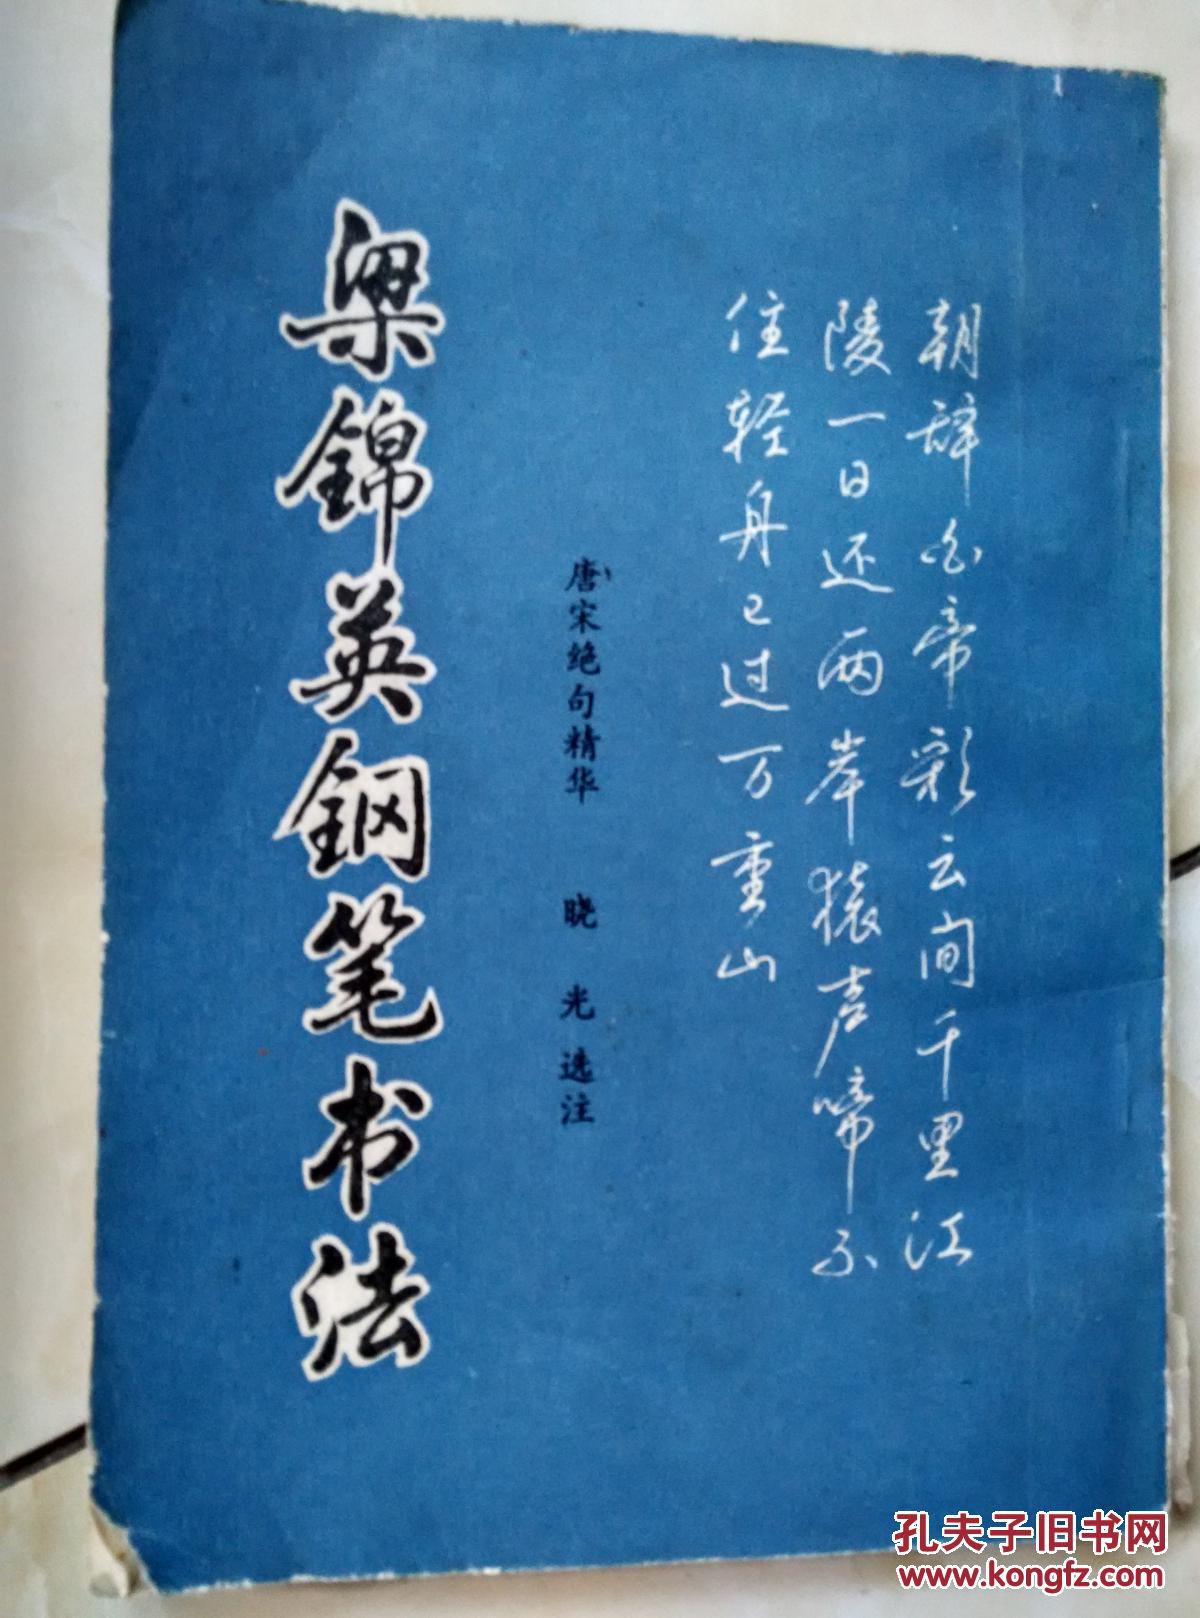 朝辞白帝彩云间千里江
陵一日还两岸猿声啼不
住轻舟已过万重山
唐宋绝句精华 晓光选注
梁锦英钢笔书法
孔夫子旧书网
www.kongfz.com